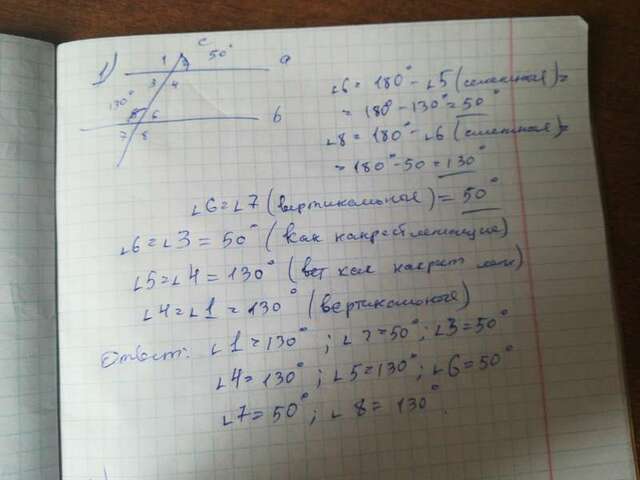 1)
c
1 2 50° a
3 4
130°
5 6 b
7 8
∠6 = 180° - ∠5 (смежная) =
= 180° - 130° = 50°
∠8 = 180° - ∠6 (смежная) =
= 180° - 50 = 130°
∠6 = ∠7 (вертикальные) = 50°
∠6 = ∠3 = 50° (как накрест лежащие)
∠5 = ∠4 = 130° (как накрест леж)
∠4 = ∠1 = 130° (вертикальные)
Ответ: ∠1 = 130°; ∠2 = 50°; ∠3 = 50°
∠4 = 130°; ∠5 = 130°; ∠6 = 50°
∠7 = 50°; ∠8 = 130°.